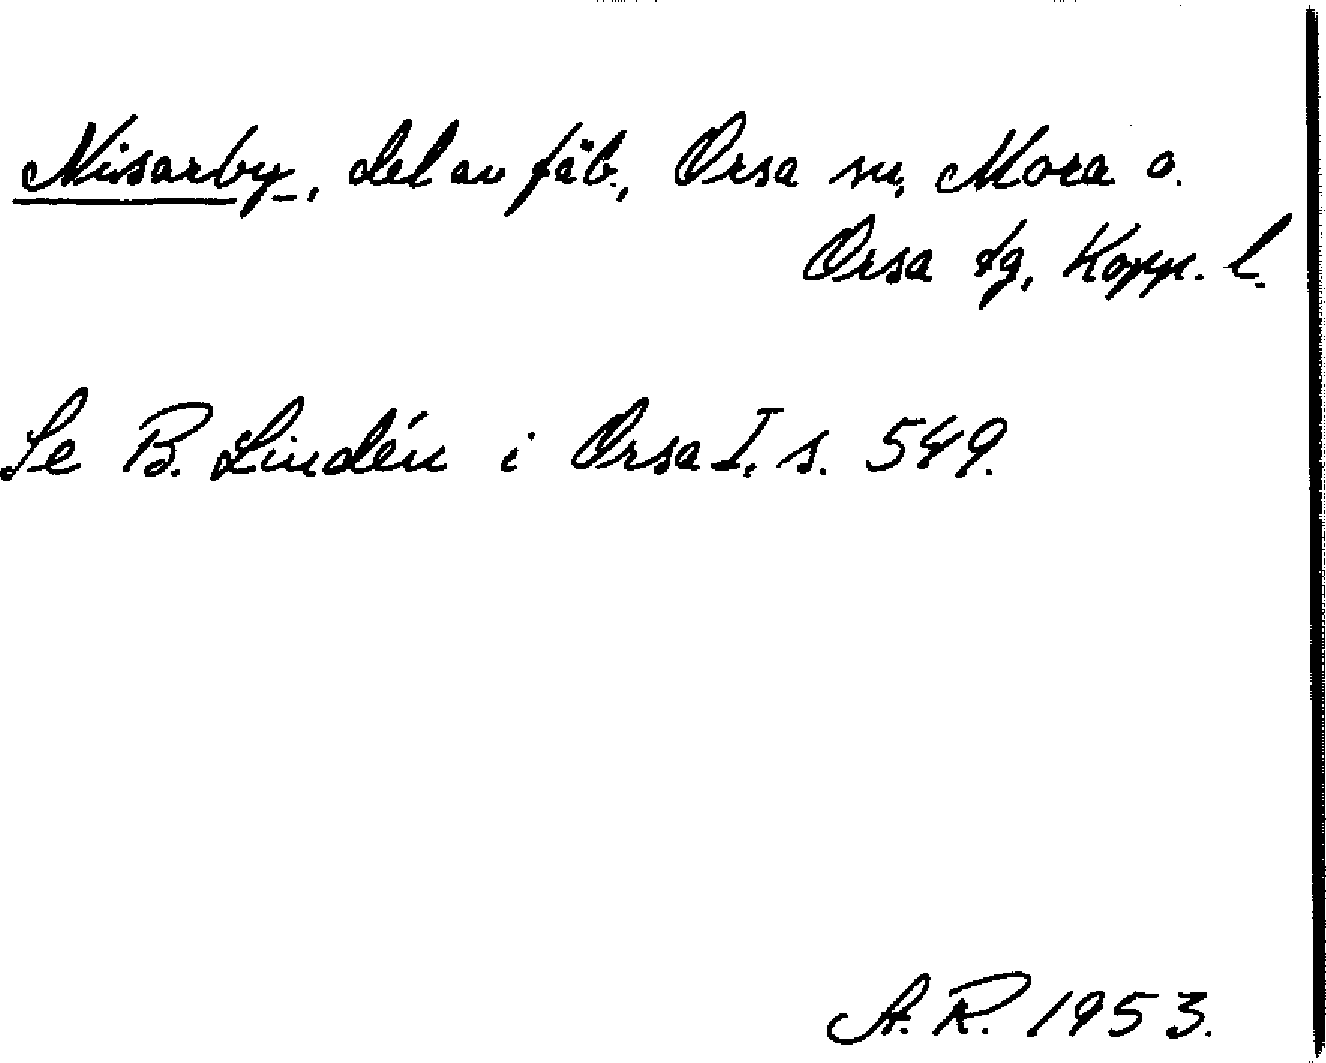 Nisarby, del av fäb., Orsa sn, Mora o.
Orsa tg, Kopp. l.
Se B. Lindén i Orsa I, s. 549.
A. R. 1953.